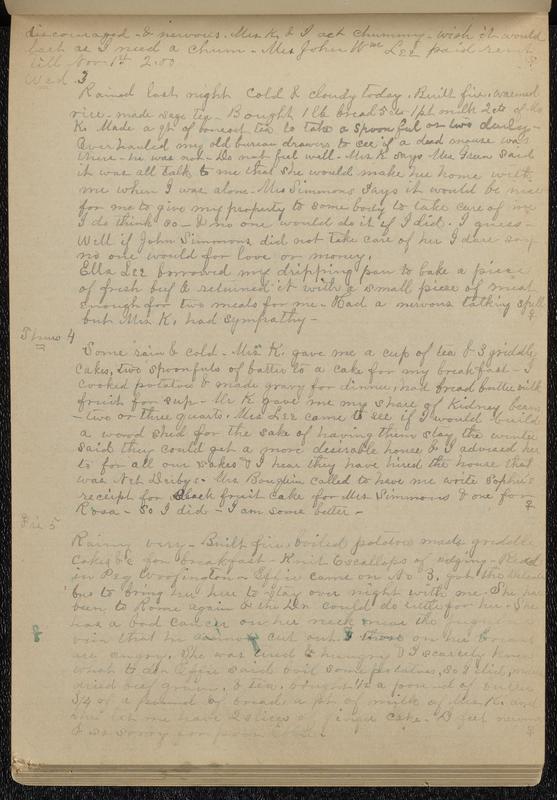 discouraged - & nervous. Mrs K. & I act chummy - wish it would
last as I need a chum - Mrs John Wm Lee paid rent
till Nov. 1st 2.00
Wed 3
Rained last night cold & cloudy today. Built fire, warmed
rice - made sage tea - Bought 1 lb bread 5 cts - 1 pt milk 2 cts of Mrs
K. Made a qt of boneset tea to take a spoonful or two daily -
Overhauled my old bureau drawers to see if a dead mouse was
there - he was not - Do not feel well - Mrs K says Mrs Green said
it was all talk to me that she would make her home with
me when I was alone. Mrs Simmons says it would be nice
for me to give my property to some body to take care of me
I do think so - & no one would do it if I did. I guess -
Well if John Simmons did not take care of her I dare say
no one would for love or money.
Ella Lee borrowed my dripping pan to bake a piece
of fresh beef & returned it with a small piece of meat
enough for two meals for me - Had a nervous talking spell
but Mrs K. had sympathy -
Thurs 4
Some rain & cold - Mrs K. gave me a cup of tea & 3 griddle
cakes, two spoonfuls of batter to a cake for my breakfast - I
cooked potatoe & made gravy for dinner, had bread butter milk
fruit for sup - Mr K gave me my share of Kidney beans
- two or three quarts. Mrs Lee came to see if I would build
a wood shed for the sake of having them stay the winter
said they could get a more desirable house & I advised her
to for all our sakes & I hear they have hired the house that
was Net Derbys - Mrs called to have me write Sophie's
receipt for Black fruit cake for Mrs Simmons & one for
Rosa - So I did - I am some better -
Fri 5
Rainy very - Built fire, boiled potatoe made griddle
cakes &c for breakfast - Knit Escallops of edging - Read
in Peg Woffington - Effie came on No 3, got the
bus to bring her here to stay over night with me. She has
been to Rome again & the Dr could do little for her - She
has a bad cancer on her neck near the
vein that he cannot cut out & those on her breast
are angry. She was tired & hungry & I scarcely knew
what to do. Effie said boil some potatoes, so I did, made
dried beef gravy, & tea, bought 1/2 a pound of butter
3/4 of a pound of bread, a pt of milk of Mrs K. and
she let me have 2 slices of ginger cake. I feel nervous
& so sorry for poor